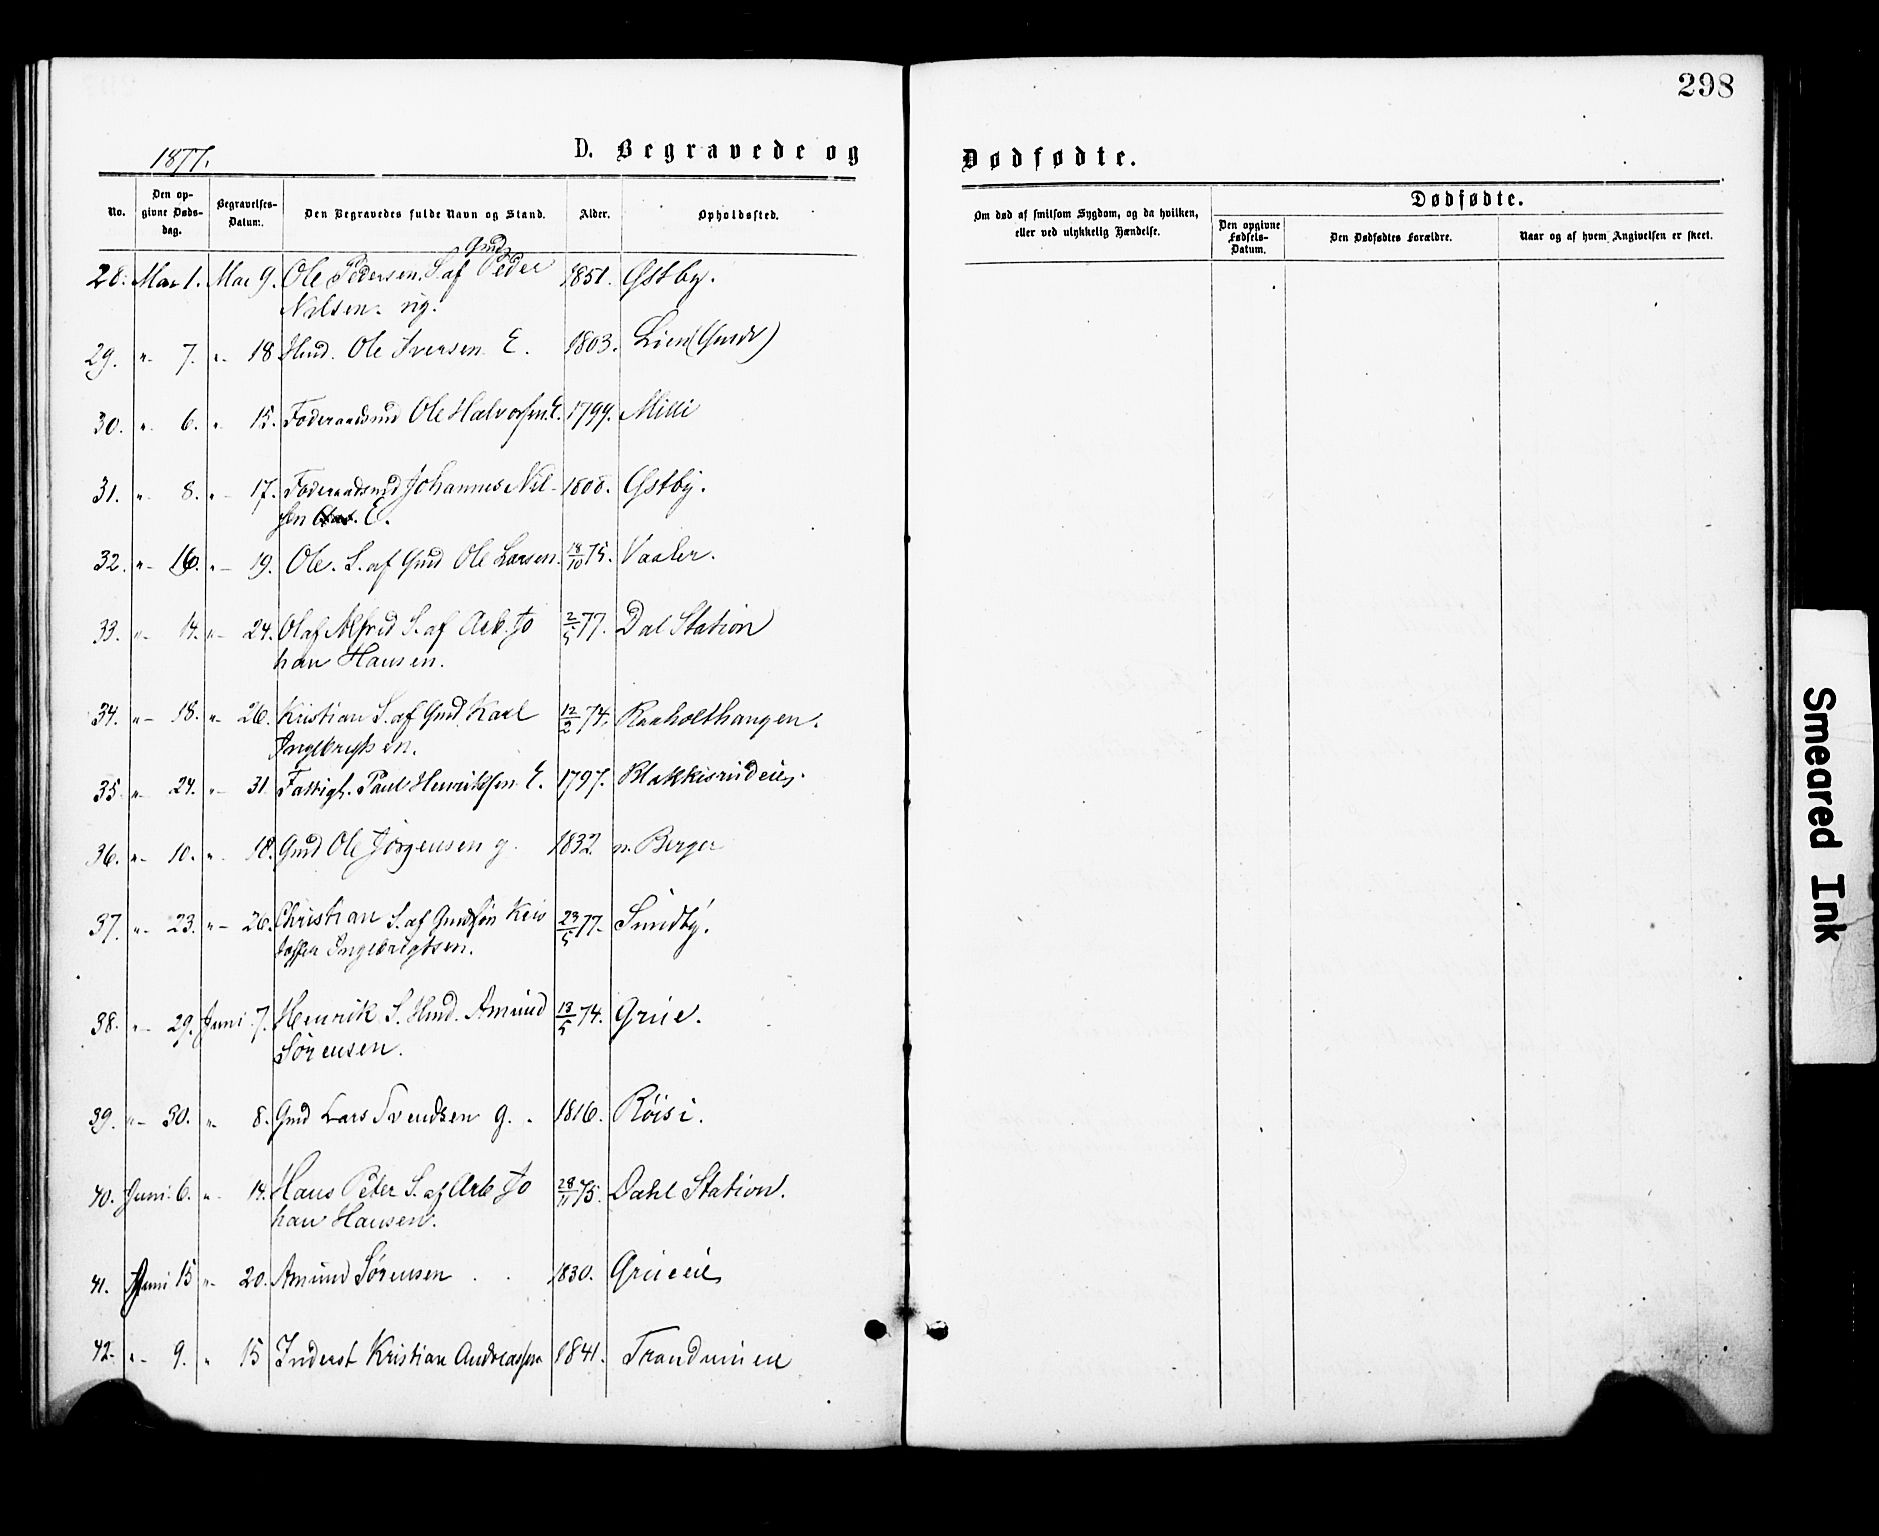 298
1877.
D. Begravede og
Dødfødte.
No.
Den opgivne Dødsdag.
Begravelses-Datum.
Den Begravedes fulde Navn og Stand.
Alder.
Opholdssted.
Om død af smitsom Sygdom, og da hvilken, eller ved ulykkelig Hændelse.
Dødfødte.
Den opgivne Fødsels-Datum.
Den Dødfødtes Forældre.
Naar og af hvem Angivelsen er skeet.
Gmd
28. Mai 1. Mai 9. Ole Pedersen S. af Peder 1851. Østby.
Nilsen. ug.
29. " 7. " 18 Hmd. Ole Iversen E. 1803. Lien
30. " 6. " 15. Foderaadsmd Ole Halvorsen E. 1799. Milli
31. " 8. " 17. Foderaadsmd Johannes Nil- 1808. Østby.
sen E.
32. " 16. " 19. Ole. S. af Gmd Ole Larsen. 18/10 75. Vaaler.
33. " 14. " 24. Olaf Alfred S. af Arb. Jo 2/5 77. Dal Station
han Hansen.
34. " 18. " 26. Kristian S. af Gmd. Karl 12/2 74. Raaholthaugen.
Ingebrigtsen.
35. " 24. " 31 Fattigl. Paul Henriksen E. 1797. Blakkisrudeie.
36. " 10. " 18. Gmd Ole Jörgensen g. 1832. n. Berger
37. " 23. " 26. Christian S. af Gmdsön Kris 23/5 77. Sundby.
toffer Ingebrigtsen.
38. " 29. Juni 7. Henrik S. Hmd. Amund 13/5 74. Grue.
Sörensen.
39. " 30. " 8. Gmd Lars Svendsen g. 1816. Röisi.
40. Juni 6. " 14. Hans Peter S. af Arb Jo 28/11 75. Dahl Station.
han Hansen.
41. Juni 15 " 20. Amund Sørensen 1830. Grueeie
42. " 9. " 15 Inderst Kristian Andreassen 1841. Trandumeie
Smeared Ink